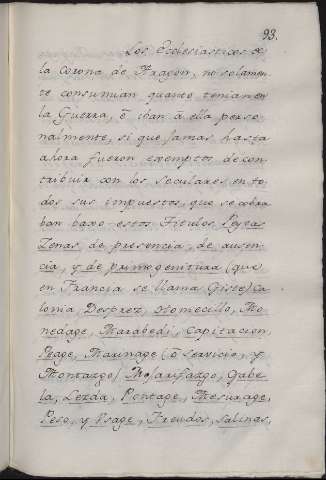 93.
Los Eclesiasticos de
la Corona de Aragon, no solamen-
te consumian quanto tenian en
la Guerra, ô iban â ella perso-
nalmente, si que jamas hasta
ahora fueron exemptos de con-
tribuir con los seculares en to-
dos sus impuestos, que se cobra
ban baxo estos Titulos,
Zenas, de presencia, de ausen-
cia, y de primogenitura (que
en Francia se llama Giste) Ca-
lonia, Desprez, Homecillo, Mo-
nedage, Marabedi, Capitacion,
Maunage (ô servicio, y
Montazgo) Mojarifazgo, Gabe-
la, Lezda, Pontage, Mesurage,
Peso, y Usage, Treudos, Salinas,